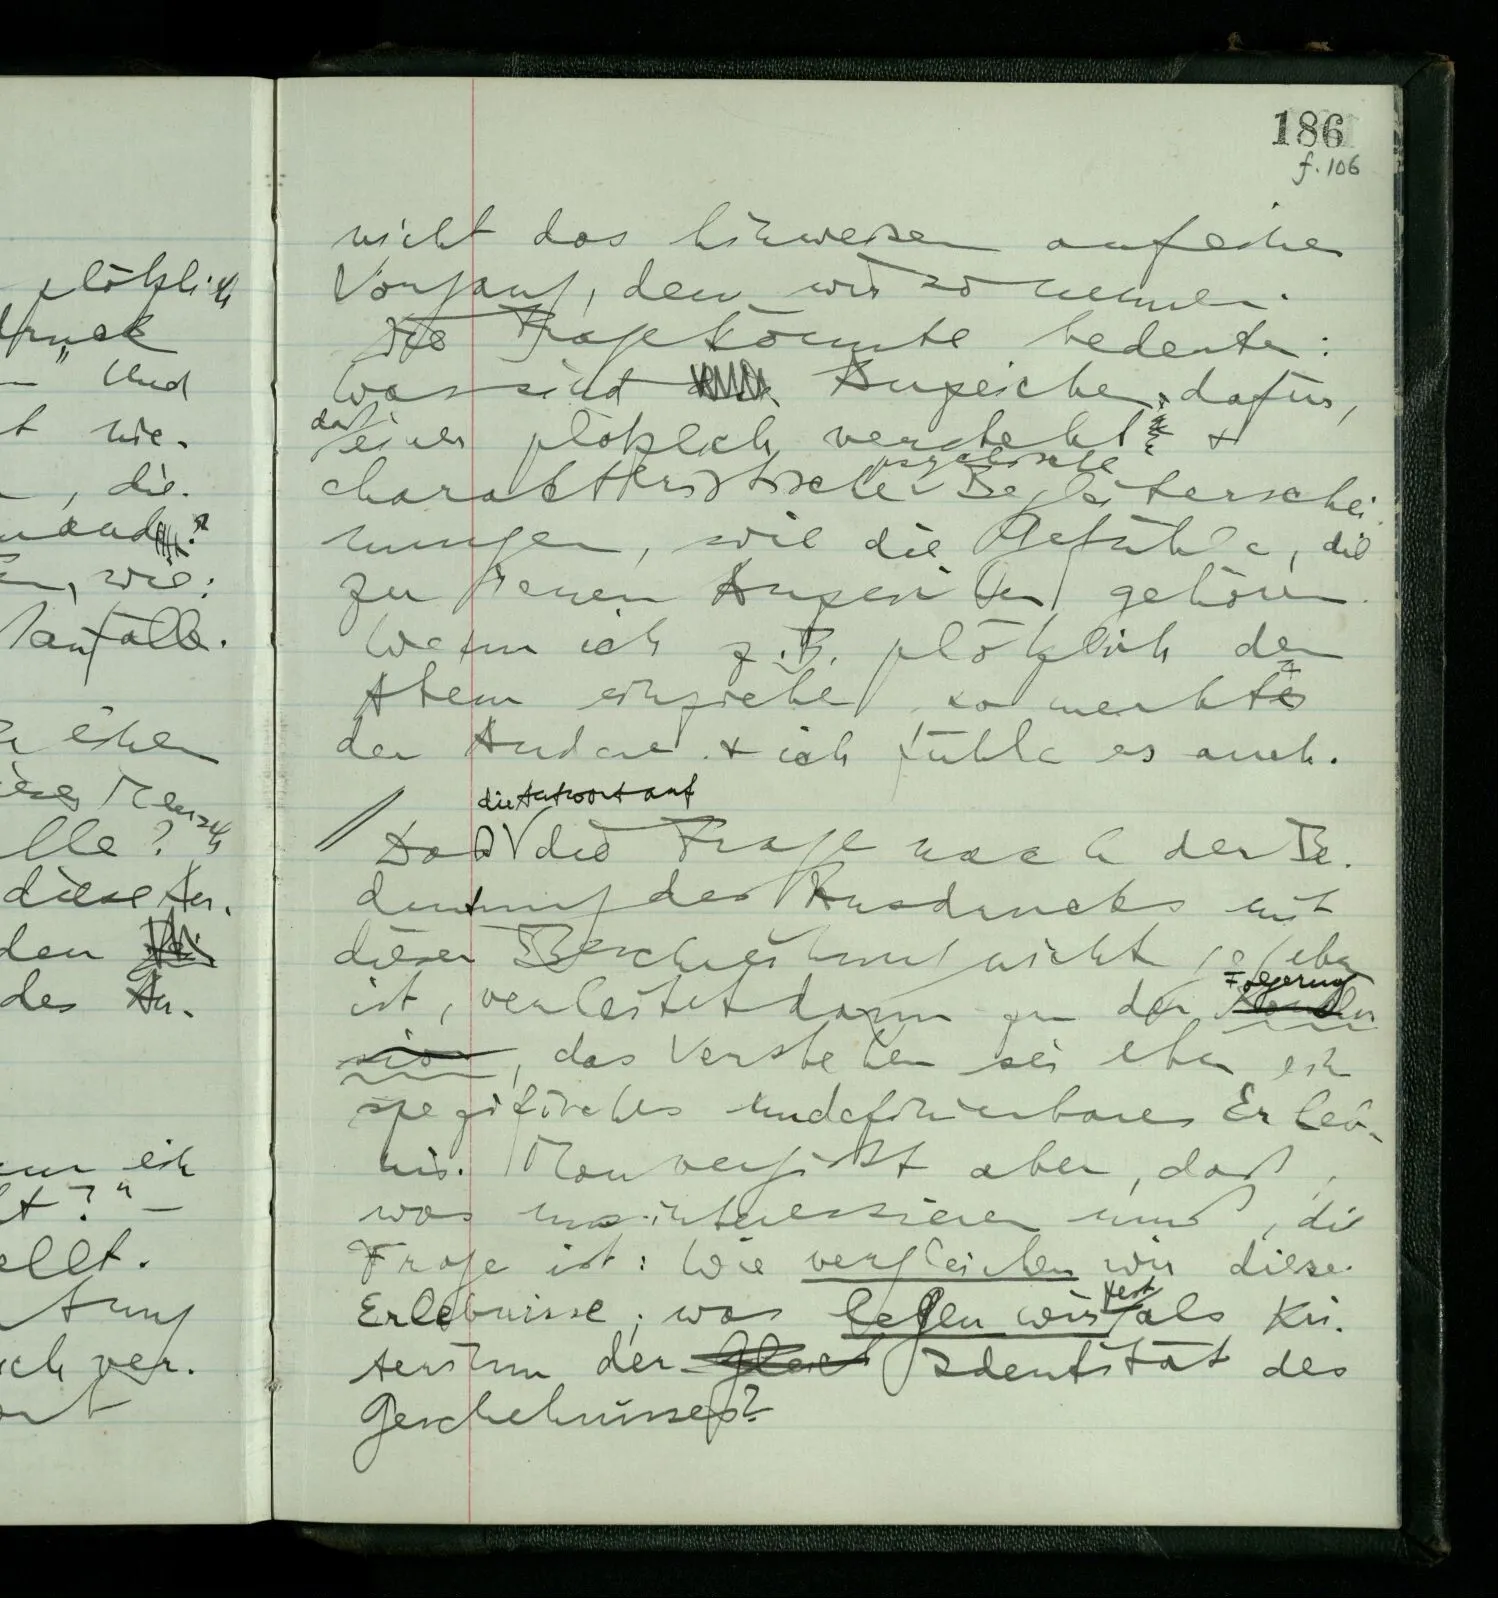 186
f. 106
plötzlich
druck
" Und
t nie-
, die
, wie:
anfälle.
einen
Mensch
lle ?
diese An-
den
des An-
ein
t ? " –
ellt.
tung
ch ver-
nicht das hinweisen auf einen
Vorgang, den wir so nennen.
Die Frage könnte bedeuten:
Was sind Anzeichen dafür,
daß einer plötzlich versteht? +
charakteristische psychische Begleiterschei-
nungen, wie die Gefühle, die
zu jenen Anzeichen gehören.
Wenn ich z.B. plötzlich den
Atem einziehe so merkt es
der Andere + ich fühle es auch.
// Daß die Antwort auf die Frage nach der Be-
deutung des Ausdrucks mit
dieser Beschreibung nicht gegeben
ist, verleitet dann zu der Folgerung Konklu-
sion, das Verstehen sei eben ein
spezifisches undefinierbares Erleb-
nis. Man vergißt aber, daß,
was uns interessieren muß, die
Frage ist: Wie vergleichen wir diese
Erlebnisse; was legen wir fest als Kri-
terium der Gleich Identität des
Geschehnisses?